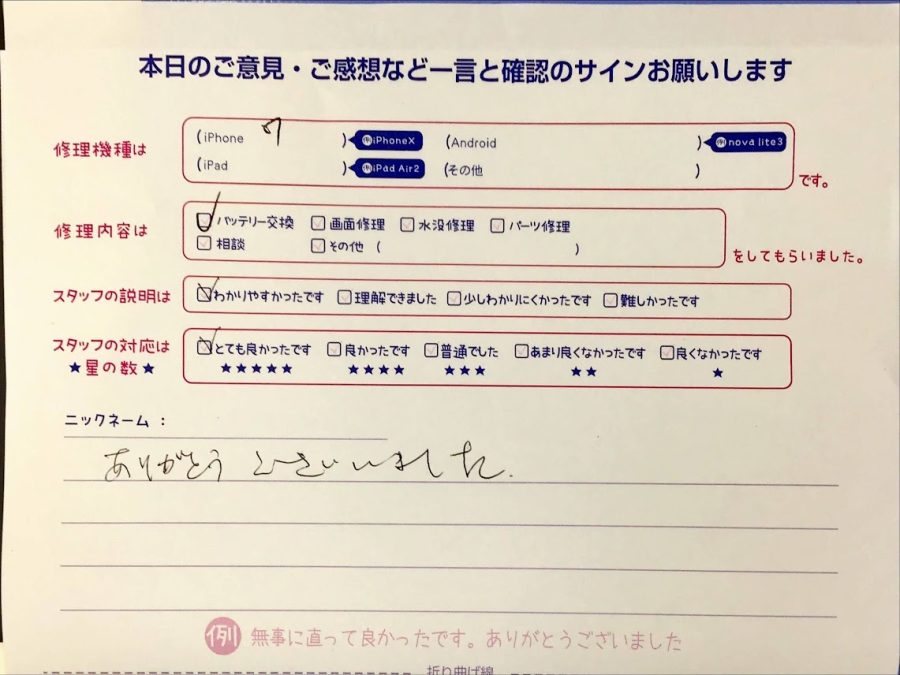 本日のご意見・ご感想など一言と確認のサインお願いします
修理機種は
(iPhone 7 ) 例iPhoneX (Android ) 例nova lite3
(iPad ) 例iPad Air2 (その他 ) です。
修理内容は
バッテリー交換 画面修理 水没修理 パーツ修理
相談 その他 ( ) をしてもらいました。
スタッフの説明は わかりやすかったです 理解できました 少しわかりにくかったです 難しかったです
スタッフの対応は とても良かったです 良かったです 普通でした あまり良くなかったです 良くなかったです
★星の数★ ★★★★★ ★★★★ ★★★ ★★ ★
ニックネーム：
ありがとうございました.
例 無事に直って良かったです。ありがとうございました
折り曲げ線